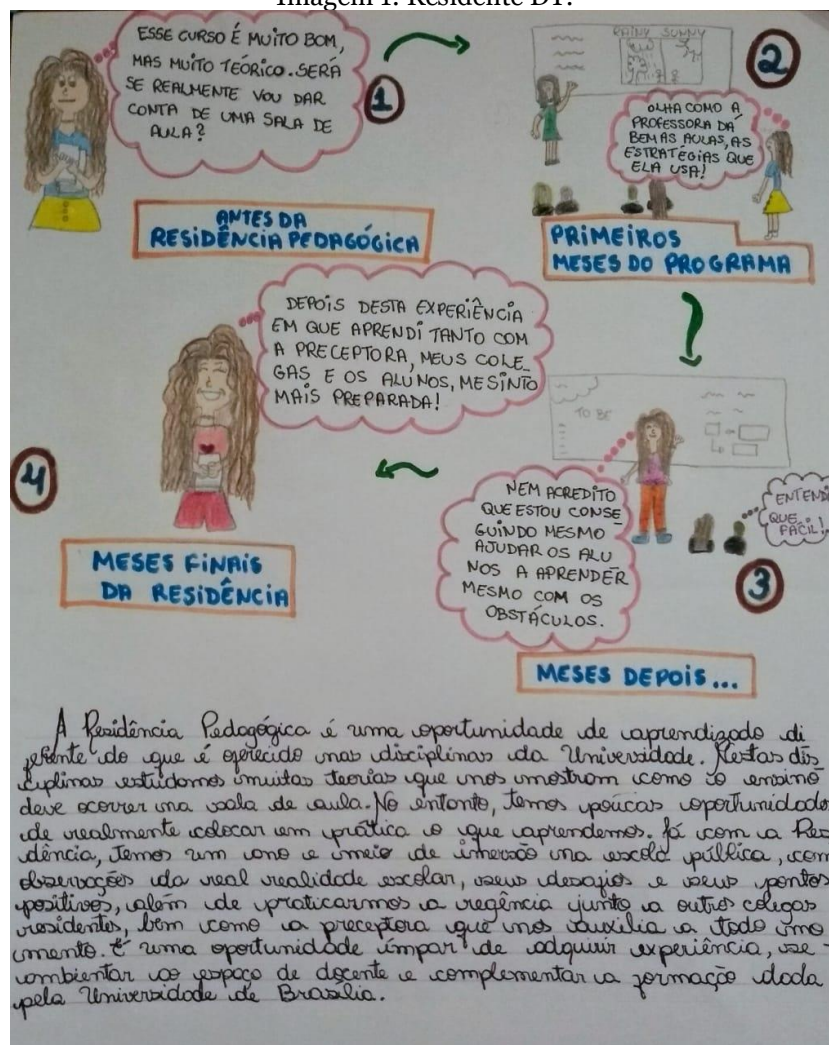 Imagem 1: Residente D1.
ESSE CURSO É MUITO BOM,
MAS MUITO TEÓRICO. SERÁ
SE REALMENTE VOU DAR
CONTA DE UMA SALA DE
AULA?
1
ANTES DA
RESIDÊNCIA PEDAGÓGICA
RAINY SUNNY
2
OLHA COMO A
PROFESSORA DÁ
BEM AS AULAS, AS
ESTRATÉGIAS QUE
ELA USA!
PRIMEIROS
MESES DO PROGRAMA
TO BE
NEM ACREDITO
QUE ESTOU CONSE
GUINDO MESMO
AJUDAR OS ALU
NOS A APRENDER
MESMO COM OS
OBSTÁCULOS.
ENTENDI
QUE
FÁCIL!
3
MESES DEPOIS...
DEPOIS DESTA EXPERIÊNCIA
EM QUE APRENDI TANTO COM
A PRECEPTORA, MEUS COLE_
GAS E OS ALUNOS, ME SINTO
MAIS PREPARADA!
4
MESES FINAIS
DA RESIDÊNCIA
A Residência Pedagógica é uma oportunidade de aprendizado di
ferente do que é oferecido nas disciplinas da Universidade. Nestas dis
ciplinas estudamos muitas teorias que nos mostram como o ensino
deve ocorrer na sala de aula. No entanto, temos poucas oportunidades
de realmente colocar em prática o que aprendemos. Já com a Resi
dência, temos um ano e meio de imersão na escola pública, com
observações da real realidade escolar, seus desafios e seus pontos
positivos, além de praticarmos a regência junto a outros colegas
residentes, bem como a preceptora que nos auxilia a todo mo
mento. É uma oportunidade ímpar de adquirir experiência, se
ambientar ao espaço de docente e complementar a formação dada
pela Universidade de Brasília.